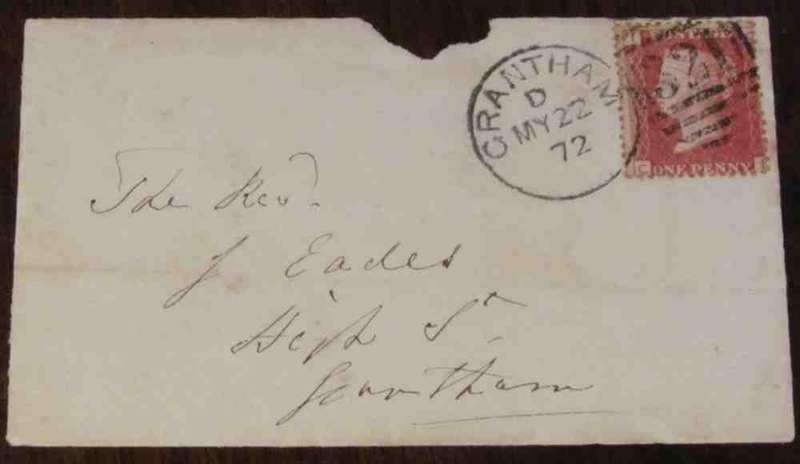 GRANTHAM
D
MY 22
72
ONE PENNY
The Revd.
J Eades
High St.
Grantham